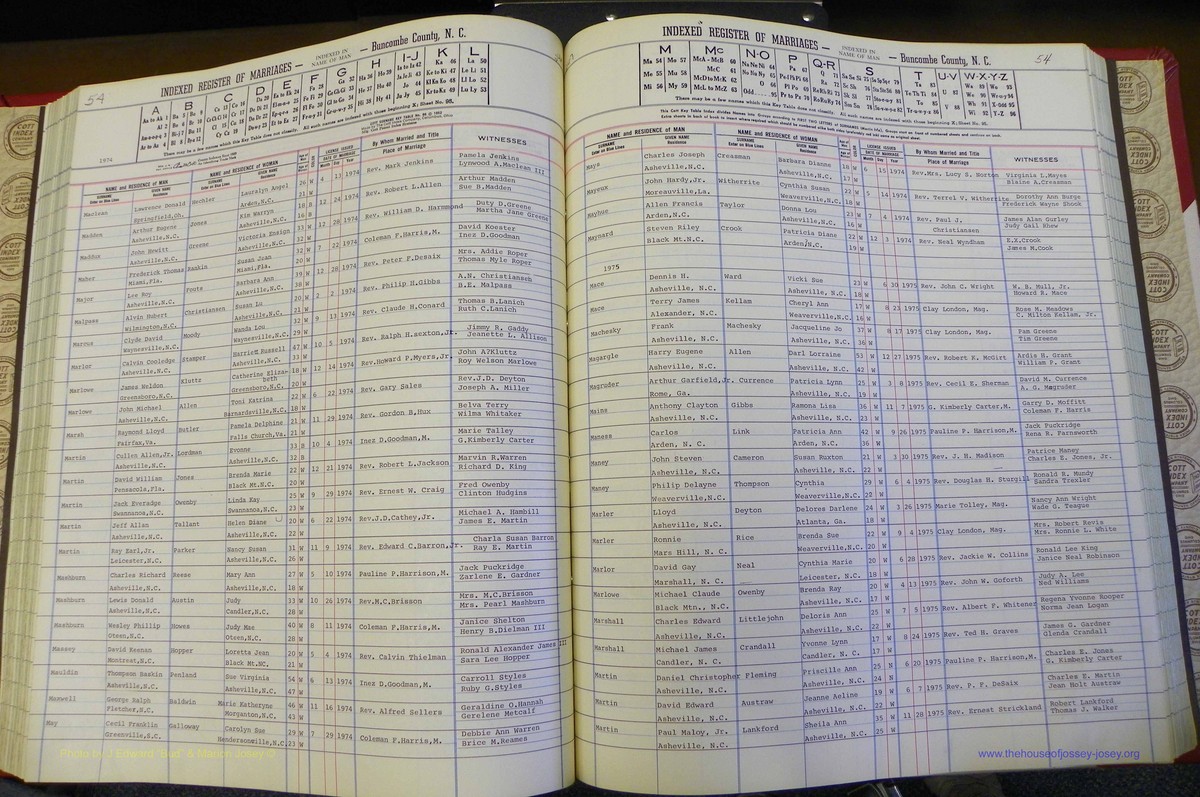 INDEXED REGISTER OF MARRIAGES — INDEXED IN NAME OF MAN — Buncombe County, N. C.
54
1974
NAME and RESIDENCE OF MAN NAME and RESIDENCE OF WOMAN LICENSE ISSUED DATE OF MARRIAGE By Whom Married and Title Place of Marriage WITNESSES
Maclean Lawrence Donald Hechler Lauralyn Angel 26 W 4 13 1974 Rev. Mark Jenkins Pamela Jenkins
Springfield,Oh. Arden,N.C. 21 W Lynwood A.Maclean III
Maddox Arthur Eugene Jones Kim Warryn 18 B 12 24 1974 Rev. Robert L.Allen Arthur Madden
Asheville,N.C. Asheville,N.C. 16 B Sue B.Madden
Maddux John Hewitt Greene Victoria Ensign 33 W 12 28 1974 Rev. William D. Hammond Duty D.Greene
Asheville,N.C. Asheville,N.C. 32 W Martha Jane Greene
Maher Frederick Thomas Baskin Susan Joan 32 W 7 22 1974 Coleman F.Harris,M. David Koester
Miami,Fla. Miami,Fla. 20 W Inez D.Goodman
Major Lee Roy Fouts Barbara Ann 39 W 12 28 1974 Rev. Peter F.Desaix Mrs. Addie Roper
Asheville,N.C. Asheville,N.C. 38 W Thomas Myle Roper
Malpass Alvin Hubert Christiansen Susan Lu 20 W 2 2 1974 Rev. Philip H.Gibbs A.N. Christianseh
Wilmington,N.C. Asheville,N.C. 21 W B.E. Malpass
Marcus Clyde David Moody Wanda Lou 32 W 9 13 1974 Rev. Claude H.Conard Thomas B.Lanich
Waynesville,N.C. Waynesville,N.C. 29 W Ruth C.Lanich
Marler Calvin Cooledge Stamper Harriett Russell 47 W 10 5 1974 Rev. Ralph H.sexton,Jr. Jimmy R. Gaddy
Asheville,N.C. Asheville,N.C. 33 W Jeanette L. Allison
Marlowe James Weldon Klutts Catherine Eliza-beth 18 W 12 14 1974 Rev.Howard P.Myers,Jr. John A?Klutts
Greensboro,N.C. Greensboro,N.C. 20 W Roy Welson Marlowe
Marlowe John Michael Allen Toni Katrina 22 W 6 22 1974 Rev. Gary Sales Rev.J.D. Deyton
Asheville,N.C. Barnardsville,N.C. 18 W Joseph A. Miller
Marsh Raymond Lloyd Butler Pamela Delphine 21 W 11 29 1974 Rev. Gordon B.Hux Belva Terry
Fairfax,Va. Falls Church,Va. 21 W Wilma Whitaker
Martin Cullen Allen,Jr. Lordman Evonne 33 B 10 4 1974 Inez D.Goodman,M. Marie Talley
Asheville,N.C. Asheville,N.C. 32 B G.Kimberly Carter
Martin David William Jones Brenda Marie 22 W 12 21 1974 Rev. Robert L.Jackson Marvin R.Warren
Pensacola,Fla. Black Mt.N.C. 20 W Richard D. King
Martin Jack Everadge Owenby Linda Kay 25 W 9 29 1974 Rev. Ernest W. Craig Fred Owenby
Swannanoa,N.C. Swannanoa,N.C. 23 W Clinton Hudgins
Martin Jeff Allan Tallant Helen Diane 20 W 6 22 1974 Rev.J.D.Cathey,Jr. Michael A. Hambill
Asheville,N.C. Asheville,N.C. 22 W James E. Martin
Martin Ray Earl,Jr. Parker Nancy Susan 31 W 11 9 1974 Rev. Edward C.Barron,Jr. Charla Susan Barron
Leicester,N.C. Asheville,N.C. 26 W Ray E. Martin
Mashburn Charles Richard Reese Mary Ann 27 W 5 10 1974 Pauline F.Harrison,M. Jack Puckridge
Asheville,N.C. Asheville,N.C. 18 W Zarlene E. Gardner
Mashburn Lewis Donald Austin Judy 33 W 10 26 1974 Rev.M.C.Brisson Mrs. M.C.Brisson
Asheville,N.C. Candler,N.C. 28 W Mrs. Pearl Mashburn
Mashburn Wesley Phillip Howes Judy Mae 40 W 8 11 1974 Coleman F.Harris,M. Janice Shelton
Oteen,N.C. Oteen,N.C. 28 W Henry B.Dielman III
Massey David Keenan Hopper Loretta Jean 20 W 5 4 1974 Rev. Calvin Thielman Ronald Alexander James III
Montreat,N.C. Black Mt.NC 21 W Sara Lee Hopper
Mauldin Thompson Baskin Penland Sue Virginia 54 W 6 13 1974 Inez D.Goodman,M. Carroll Styles
Asheville,N.C. Asheville,N.C. 47 W Ruby G.Styles
Maxwell George Ralph Baldwin Marie Katheryne 46 W 11 16 1974 Rev. Alfred Sellers Geraldine O.Hannah
Fletcher,N.C. Morganton,N.C. 43 W Gerelene Metcalf
May Cecil Franklin Galloway Carolyn Sue 29 W 7 29 1974 Coleman F.Harris,M. Debbie Ann Warren
Greenville,S.C. Hendersonville,N.C. 23 W Brice M.Reames
Photo by J Edward "Bud" & Marion Josey ©
INDEXED REGISTER OF MARRIAGES — INDEXED IN NAME OF MAN — Buncombe County, N. C.
54
NAME and RESIDENCE OF MAN NAME and RESIDENCE OF WOMAN LICENSE ISSUED DATE OF MARRIAGE By Whom Married and Title Place of Marriage WITNESSES
Maye Charles Joseph Cressman Barbara Dianne 18 W 6 15 1974 Rev.Mrs. Lucy S. Norton Virginia L.Mayes
Asheville,N.C. Asheville,N.C. 17 W Blaine A.Cressman
Mayeux John Hardy,Jr. Witherrite Cynthia Susan 22 W 5 14 1974 Rev. Terrel V. Witherite Dorothy Ann Burge
Moreauville,La. Weaverville,N.C. 18 W Frederick Wayne Shook
Mayhue Allen Francis Taylor Donna Lou 23 W 7 4 1974 Rev. Paul J. Christiansen James Alan Gurley
Arden,N.C. Asheville,N.C. 16 W Judy Gail Rhew
Maynard Steven Riley Crook Patricia Diane 22 W 12 3 1974 Rev. Neal Wyndham E.X.Crook
Black Mt.N.C. Arden,N.C. 19 W James M.Cook
1975
Mace Dennis H. Ward Vicki Sue 23 W 6 30 1975 Rev. John C. Wright W. B. Hull, Jr.
Asheville, N.C. Asheville, N.C. 18 W Howard R. Mace
Mace Terry James Kellam Cheryl Ann 17 W 8 23 1975 Clay London, Mag. Rose M. Meadows
Alexander, N.C. Weaverville,N.C. 16 W C. Milton Kellam, Jr.
Machesky Frank Machesky Jacqueline Jo 37 W 8 17 1975 Clay London, Mag. Pam Greene
Asheville, N.C. Asheville, N.C. 36 W Tim Greene
Magargle Harry Eugene Allen Darl Lorraine 53 W 12 27 1975 Rev. Robert E. McGirt Ardie H. Grant
Asheville, N.C. Asheville, N.C. 42 W William P. Grant
Magruder Arthur Garfield,Jr. Currence Patricia Lynn 25 W 3 8 1975 Rev. Cecil E. Sherman David M. Currence
Rome, Ga. Asheville, N.C. 19 W A. G. Magruder
Mains Anthony Clayton Gibbe Ramona Lisa 36 W 11 7 1975 G. Kimberly Carter,M. Garry D. Moffitt
Asheville, N.C. Asheville, N.C. 23 W Coleman F. Harris
Maness Carlos Link Patricia Ann 42 W 9 26 1975 Pauline F. Harrison,M. Jack Puckridge
Arden, N. C. Arden, N.C. 36 W Rena R. Farnsworth
Maney John Steven Cameron Susan Ruxton 21 W 3 30 1975 Rev. J. H. Madison Patrice Maney
Asheville, N.C. Asheville, N.C. 22 W Charles E. Jones, Jr.
Maney Philip Delayne Thompson Cynthia 29 W 6 4 1975 Rev. Douglas H. Sturgill Ronald R. Mundy
Weaverville,N.C. Weaverville,N.C. 22 W Sandra Trexler
Marler Lloyd Deyton Delores Darlene 24 W 3 26 1975 Marie Tolley, Mag. Nancy Ann Wright
Asheville, N.C. Atlanta, Ga. 18 W Wade G. Teague
Marler Ronnie Rice Brenda Sue 22 W 9 4 1975 Clay London, Mag. Mrs. Robert Revis
Mars Hill, N. C. Weaverville,N.C. 20 W Mrs. Ronnie L. White
Marlor David Gay Neal Cynthia Marie 20 W 6 28 1975 Rev. Jackie W. Collins Ronald Lee King
Marshall, N. C. Leicester, N.C. 18 W Janice Neal Robinson
Marlowe Michael Claude Owenby Brenda Ray 20 W 4 13 1975 Rev. John W. Goforth Judy A. Lee
Black Mtn., N.C. Asheville, N.C. 17 W Ned Williams
Marshall Charles Edward Littlejohn Deloris Ann 25 W 7 5 1975 Rev. Albert F. Whitener Regena Yvonne Hooper
Asheville, N.C. Asheville, N.C. 22 W Norma Jean Logan
Marshall Michael James Crandall Yvonne Lynn 17 W 8 24 1975 Rev. Ted H. Graves James G. Gardner
Candler, N. C. Candler, N.C. 17 W Glenda Crandall
Martin Daniel Christopher Fleming Priscille Ann 25 N 6 20 1975 Pauline F. Harrison,M. Charles E. Jones
Asheville, N.C. Asheville, N.C. 24 N G. Kimberly Carter
Martin David Edward Austraw Jeanne Aeline 19 W 6 7 1975 Rev. P. F. DeSaix Charles E. Martin
Asheville, N.C. Asheville, N.C. 22 W Jean Holt Austraw
Martin Paul Maloy, Jr. Lankford Sheila Ann 35 W 11 28 1975 Rev. Ernest Strickland Robert Lankford
Asheville, N.C. Asheville, N.C. 25 W Thomas J. Walker
www.thehouseofjossey-josey.org